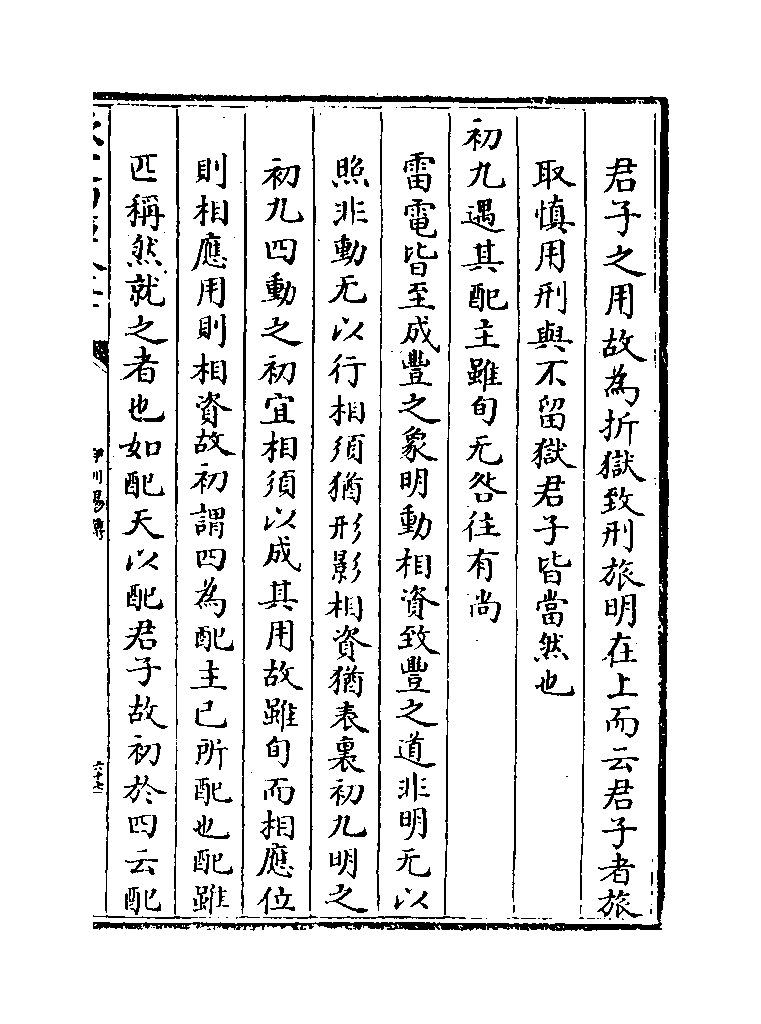 君子之用故為折獄致刑旅明在上而云君子者旅
取慎用刑與不留獄君子皆當然也
初九遇其配主雖旬无咎往有尚
雷電皆至成豐之象明動相資致豐之道非明无以
照非動无以行相須猶形影相資猶表裏初九明之
初九四動之初宜相須以成其用故雖旬而相應位
則相應用則相資故初謂四為配主己所配也配雖
匹稱然就之者也如配天以配君子故初於四云配
伊川易傳
六十七